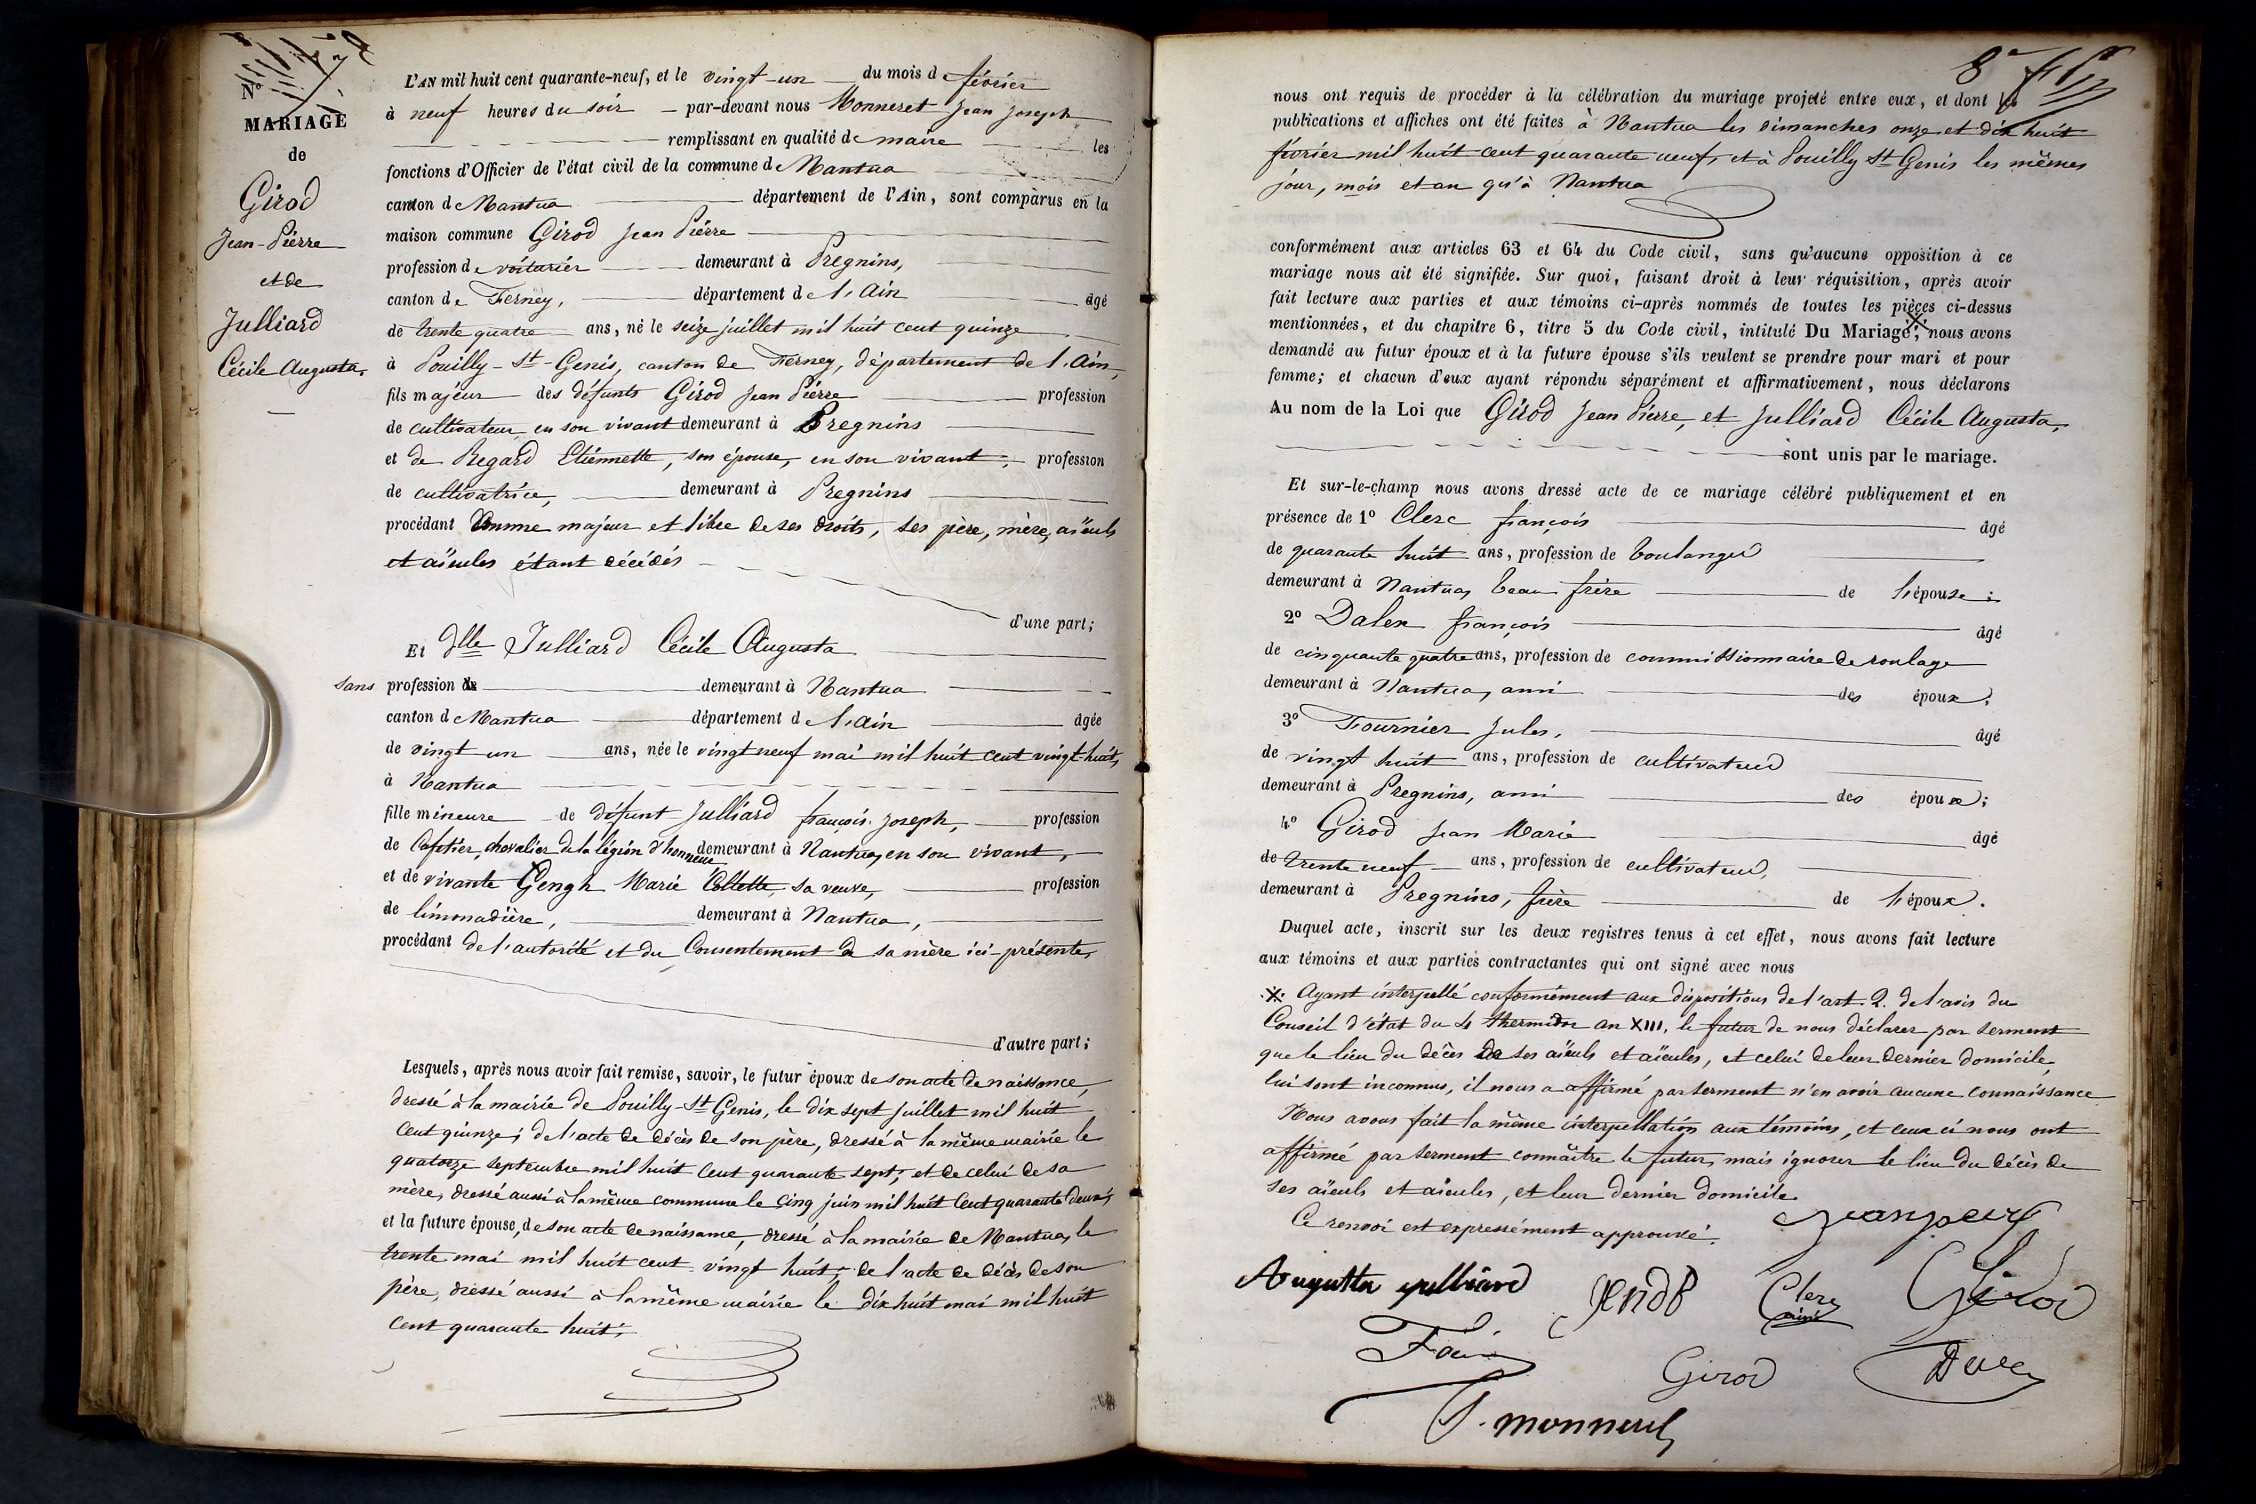 N°
MARIAGE
de
Girod
Jean-Pierre
et de
Julliard
Cécile Augusta.
L'AN mil huit cent quarante-neuf, et le vingt-un du mois de février
à neuf heures du soir par-devant nous Monneret Jean Joseph
remplissant en qualité de maire les
fonctions d'Officier de l'état civil de la commune de Nantua
canton de Nantua département de l'Ain, sont comparus en la
maison commune Girod Jean Pierre
profession de voiturier demeurant à Pregnins,
canton de Ferney, département de l'Ain âgé
de trente quatre ans, né le seize juillet mil huit cent quinze
à Pouilly-St-Genis, canton de Ferney, département de l'Ain,
fils majeur des défunts Girod Jean Pierre profession
de cultivateur en son vivant demeurant à Pregnins
et de Regard Etiennette, son épouse, en son vivant, profession
de cultivatrice, demeurant à Pregnins
procédant comme majeur et libre de ses droits, ses père, mère, aïeuls
et aïeules étant décédés
d'une part;
Et Dlle Julliard Cécile Augusta
sans profession de demeurant à Nantua
canton de Nantua département de l'Ain âgée
de vingt un ans, née le vingt neuf mai mil huit cent vingt-huit,
à Nantua
fille mineure de défunt Julliard françois joseph, profession
de Cafetier, chevalier de la légion d'honneur demeurant à Nantua, en son vivant,
et de vivante Gengh Marie Collette, sa veuve, profession
de limonadière, demeurant à Nantua,
procédant de l'autorité et du Consentement de sa mère ici-présente,
d'autre part;
Lesquels, après nous avoir fait remise, savoir, le futur époux de son acte de naissance,
dressé à la mairie de Pouilly-St-Genis, le dix sept juillet mil huit
cent quinze; de l'acte de décès de son père, dressé à la même mairie le
quatorze septembre mil huit cent quarante sept, et de celui de sa
mère, dressé aussi à la même commune le cinq juin mil huit cent quarante deux;
et la future épouse, de son acte de naissance, dressé à la mairie de Nantua, le
trente mai mil huit cent vingt huit; de l'acte de décès de son
père, dressé aussi à la même mairie le dix huit mai mil huit
cent quarante huit;
nous ont requis de procéder à la célébration du mariage projeté entre eux, et dont les
publications et affiches ont été faites à Nantua les dimanches onze et dix huit
février mil huit cent quarante neuf, et à Pouilly St Genis les mêmes
jour, mois et an qu'à Nantua
conformément aux articles 63 et 64 du Code civil, sans qu'aucune opposition à ce
mariage nous ait été signifiée. Sur quoi, faisant droit à leur réquisition, après avoir
fait lecture aux parties et aux témoins ci-après nommés de toutes les pièces ci-dessus
mentionnées, et du chapitre 6, titre 5 du Code civil, intitulé Du Mariage, nous avons
demandé au futur époux et à la future épouse s'ils veulent se prendre pour mari et pour
femme; et chacun d'eux ayant répondu séparément et affirmativement, nous déclarons
Au nom de la Loi que Girod Jean Pierre, et Julliard Cécile Augusta,
sont unis par le mariage.
Et sur-le-champ nous avons dressé acte de ce mariage célébré publiquement et en
présence de 1° Clerc françois âgé
de quarante huit ans, profession de boulanger
demeurant à Nantua, beau frère de l'épouse;
2° Dalex françois âgé
de cinquante quatre ans, profession de commissionnaire de roulage
demeurant à Nantua, ami des époux;
3° Fournier Jules, âgé
de vingt huit ans, profession de cultivateur
demeurant à Pregnins, ami des époux;
4° Girod Jean Marie âgé
de trente neuf ans, profession de cultivateur,
demeurant à Pregnins, frère de l'époux.
Duquel acte, inscrit sur les deux registres tenus à cet effet, nous avons fait lecture
aux témoins et aux parties contractantes qui ont signé avec nous
Ayant interpellé conformément aux dispositions de l'art. 2. de l'avis du
Conseil d'état du 4 thermidor an XIII, le futur de nous déclarer par serment
que le lieu du décès de ses aïeuls et aïeules, et celui de leur dernier domicile,
lui sont inconnus, il nous a affirmé par serment n'en avoir aucune connaissance
Nous avons fait la même interpellation aux témoins, et ceux ci nous ont
affirmé par serment connaître le futur, mais ignorer le lieu du décès de
ses aïeuls et aïeules, et leur dernier domicile.
Ce renvoi est expressément approuvé.
Augusta julliard
Clerc
Girod
Girod